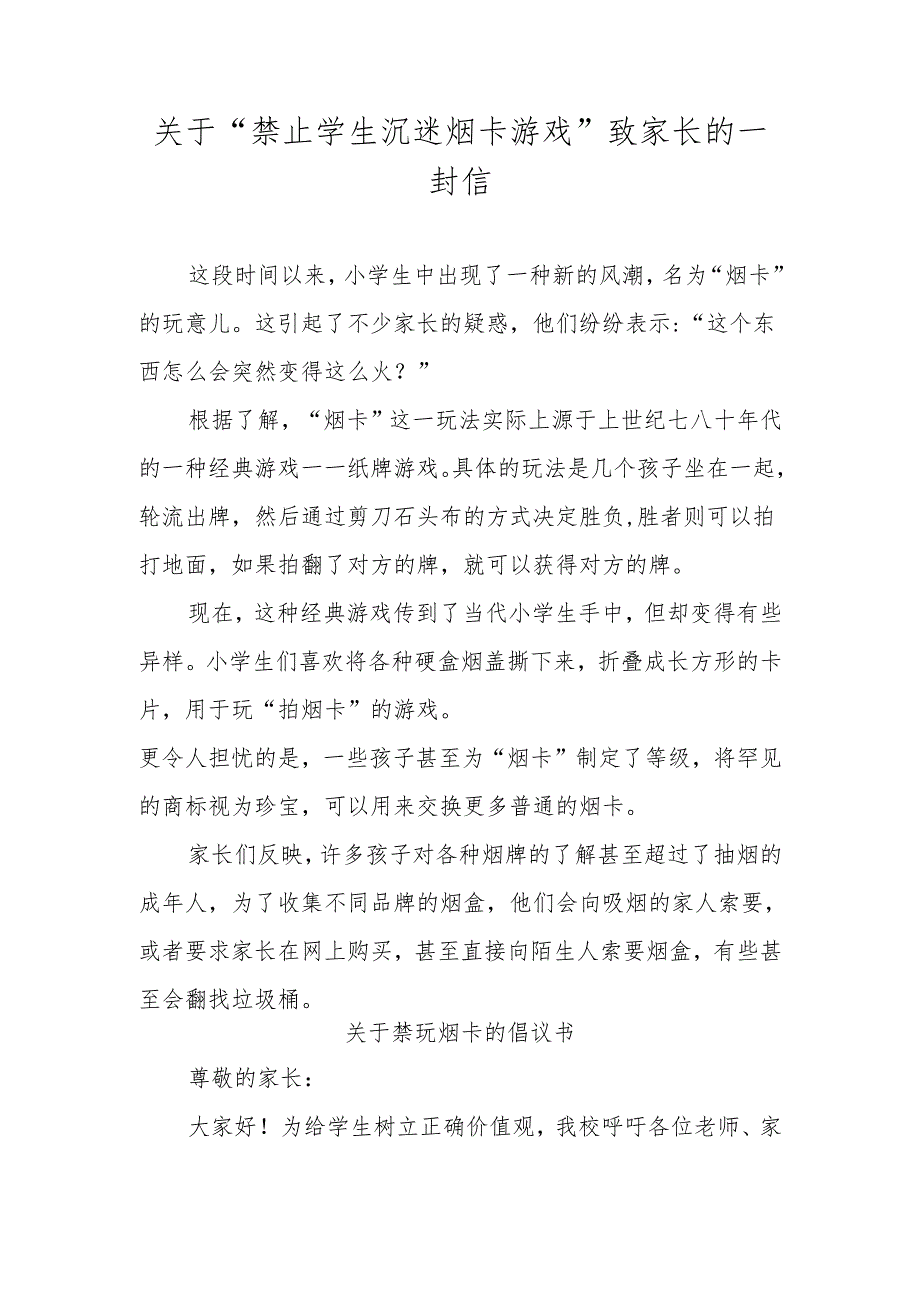 关于“禁止学生沉迷烟卡游戏”致家长的一
封信
这段时间以来,小学生中出现了一种新的风潮,名为“烟卡”
的玩意儿。这引起了不少家长的疑惑，他们纷纷表示:“这个东
西怎么会突然变得这么火？”
根据了解，“烟卡”这一玩法实际上源于上世纪七八十年代
的一种经典游戏一一纸牌游戏。具体的玩法是几个孩子坐在一起，
轮流出牌，然后通过剪刀石头布的方式决定胜负,胜者则可以拍
打地面，如果拍翻了对方的牌，就可以获得对方的牌。
现在，这种经典游戏传到了当代小学生手中，但却变得有些
异样。小学生们喜欢将各种硬盒烟盖撕下来，折叠成长方形的卡
片，用于玩“拍烟卡”的游戏。
更令人担忧的是，一些孩子甚至为“烟卡”制定了等级，将罕见
的商标视为珍宝，可以用来交换更多普通的烟卡。
家长们反映,许多孩子对各种烟牌的了解甚至超过了抽烟的
成年人，为了收集不同品牌的烟盒，他们会向吸烟的家人索要，
或者要求家长在网上购买，甚至直接向陌生人索要烟盒，有些甚
至会翻找垃圾桶。
关于禁玩烟卡的倡议书
尊敬的家长：
大家好！为给学生树立正确价值观，我校呼吁各位老师、家